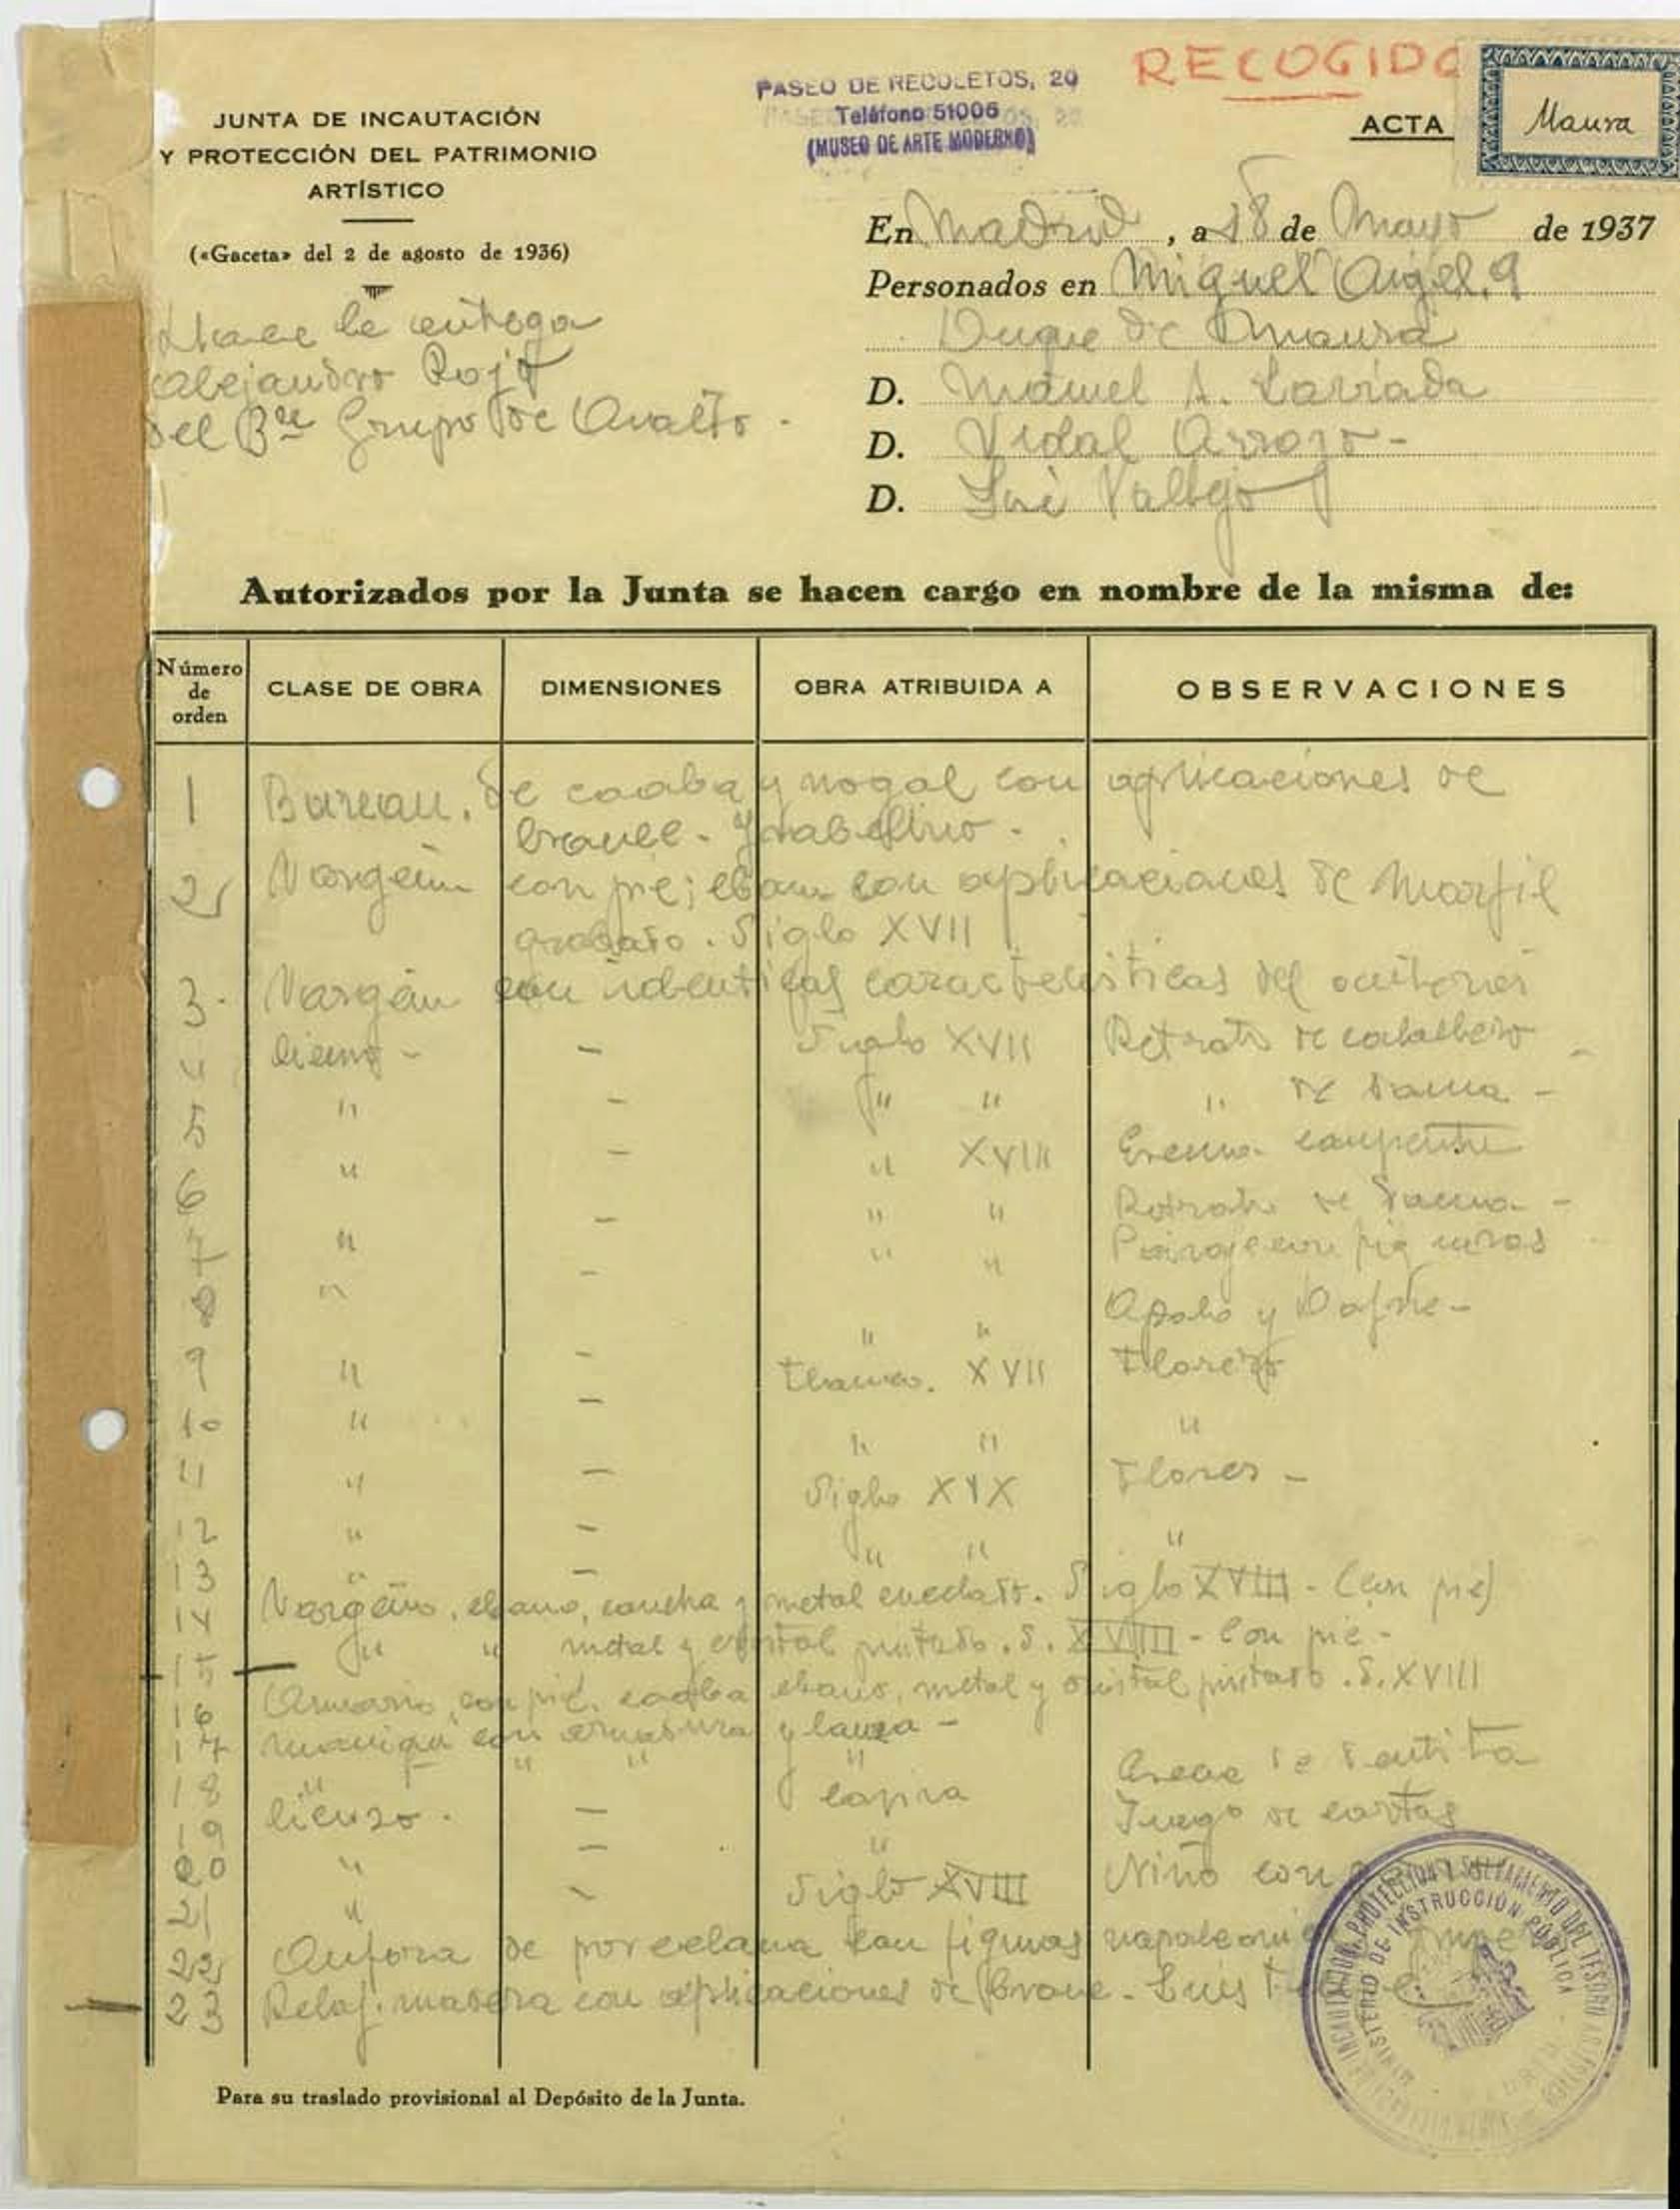 JUNTA DE INCAUTACIÓN
Y PROTECCIÓN DEL PATRIMONIO
ARTÍSTICO
(«Gaceta» del 2 de agosto de 1936)
PASEO DE RECOLETOS, 20
Teléfono 51006
(MUSEO DE ARTE MODERNO)
RECOGIDO
ACTA
Maura
En Madrid, a 18 de Mayo de 1937
Personados en Miguel Angel, 9
Duque de Maura
D. Manuel A. Laviada
D. Vidal Arroyo -
D. José Vallejo
Hace la entrega
Alejandro Rojo
del Bón Grupo de Asalto.
Autorizados por la Junta se hacen cargo en nombre de la misma de:
Número de orden CLASE DE OBRA DIMENSIONES OBRA ATRIBUIDA A OBSERVACIONES
1 Bureau. de caoba y nogal con aplicaciones de
bronce. Ysabelino.
2 Vargeño con pie; ebano con aplicaciones de Marfil
grabado. Siglo XVII
3. Vargeño con identicas caracteristicas del anterior
4 lienzo - - Siglo XVII Retrato de caballero -
5 " - " " " de dama -
6 " - " XVIII Escena campestre
7 " - " " Retrato de dama -
8 " - " " Paisaje con figuras
9 " - " " Apolo y Dafne -
10 " - Flamenco. XVII Florero
11 " - " " "
12 " - Siglo XIX Flores -
13 " - " " "
14 Vargeño, ebano, concha y metal . Siglo XVIII - (con pie)
15 " " metal y cristal pintado. S. XVIII - Con pie -
16 Armario, con pie, caoba ebano, metal y cristal pintado. S. XVIII
17 maniqui con armadura y lanza -
18 " " " "
19 lienzo. - Tapira de
20 " - " Juego de cartas
21 " - Siglo XVIII Niño con
22 Anfora de porcelana con figuras
23 Reloj. madera con aplicaciones de bronce - Luis
INCAUTACION, PROTECCION Y SALVAMENTO DEL TESORO
MINISTERIO DE INSTRUCCIÓN PÚBLICA
Para su traslado provisional al Depósito de la Junta.